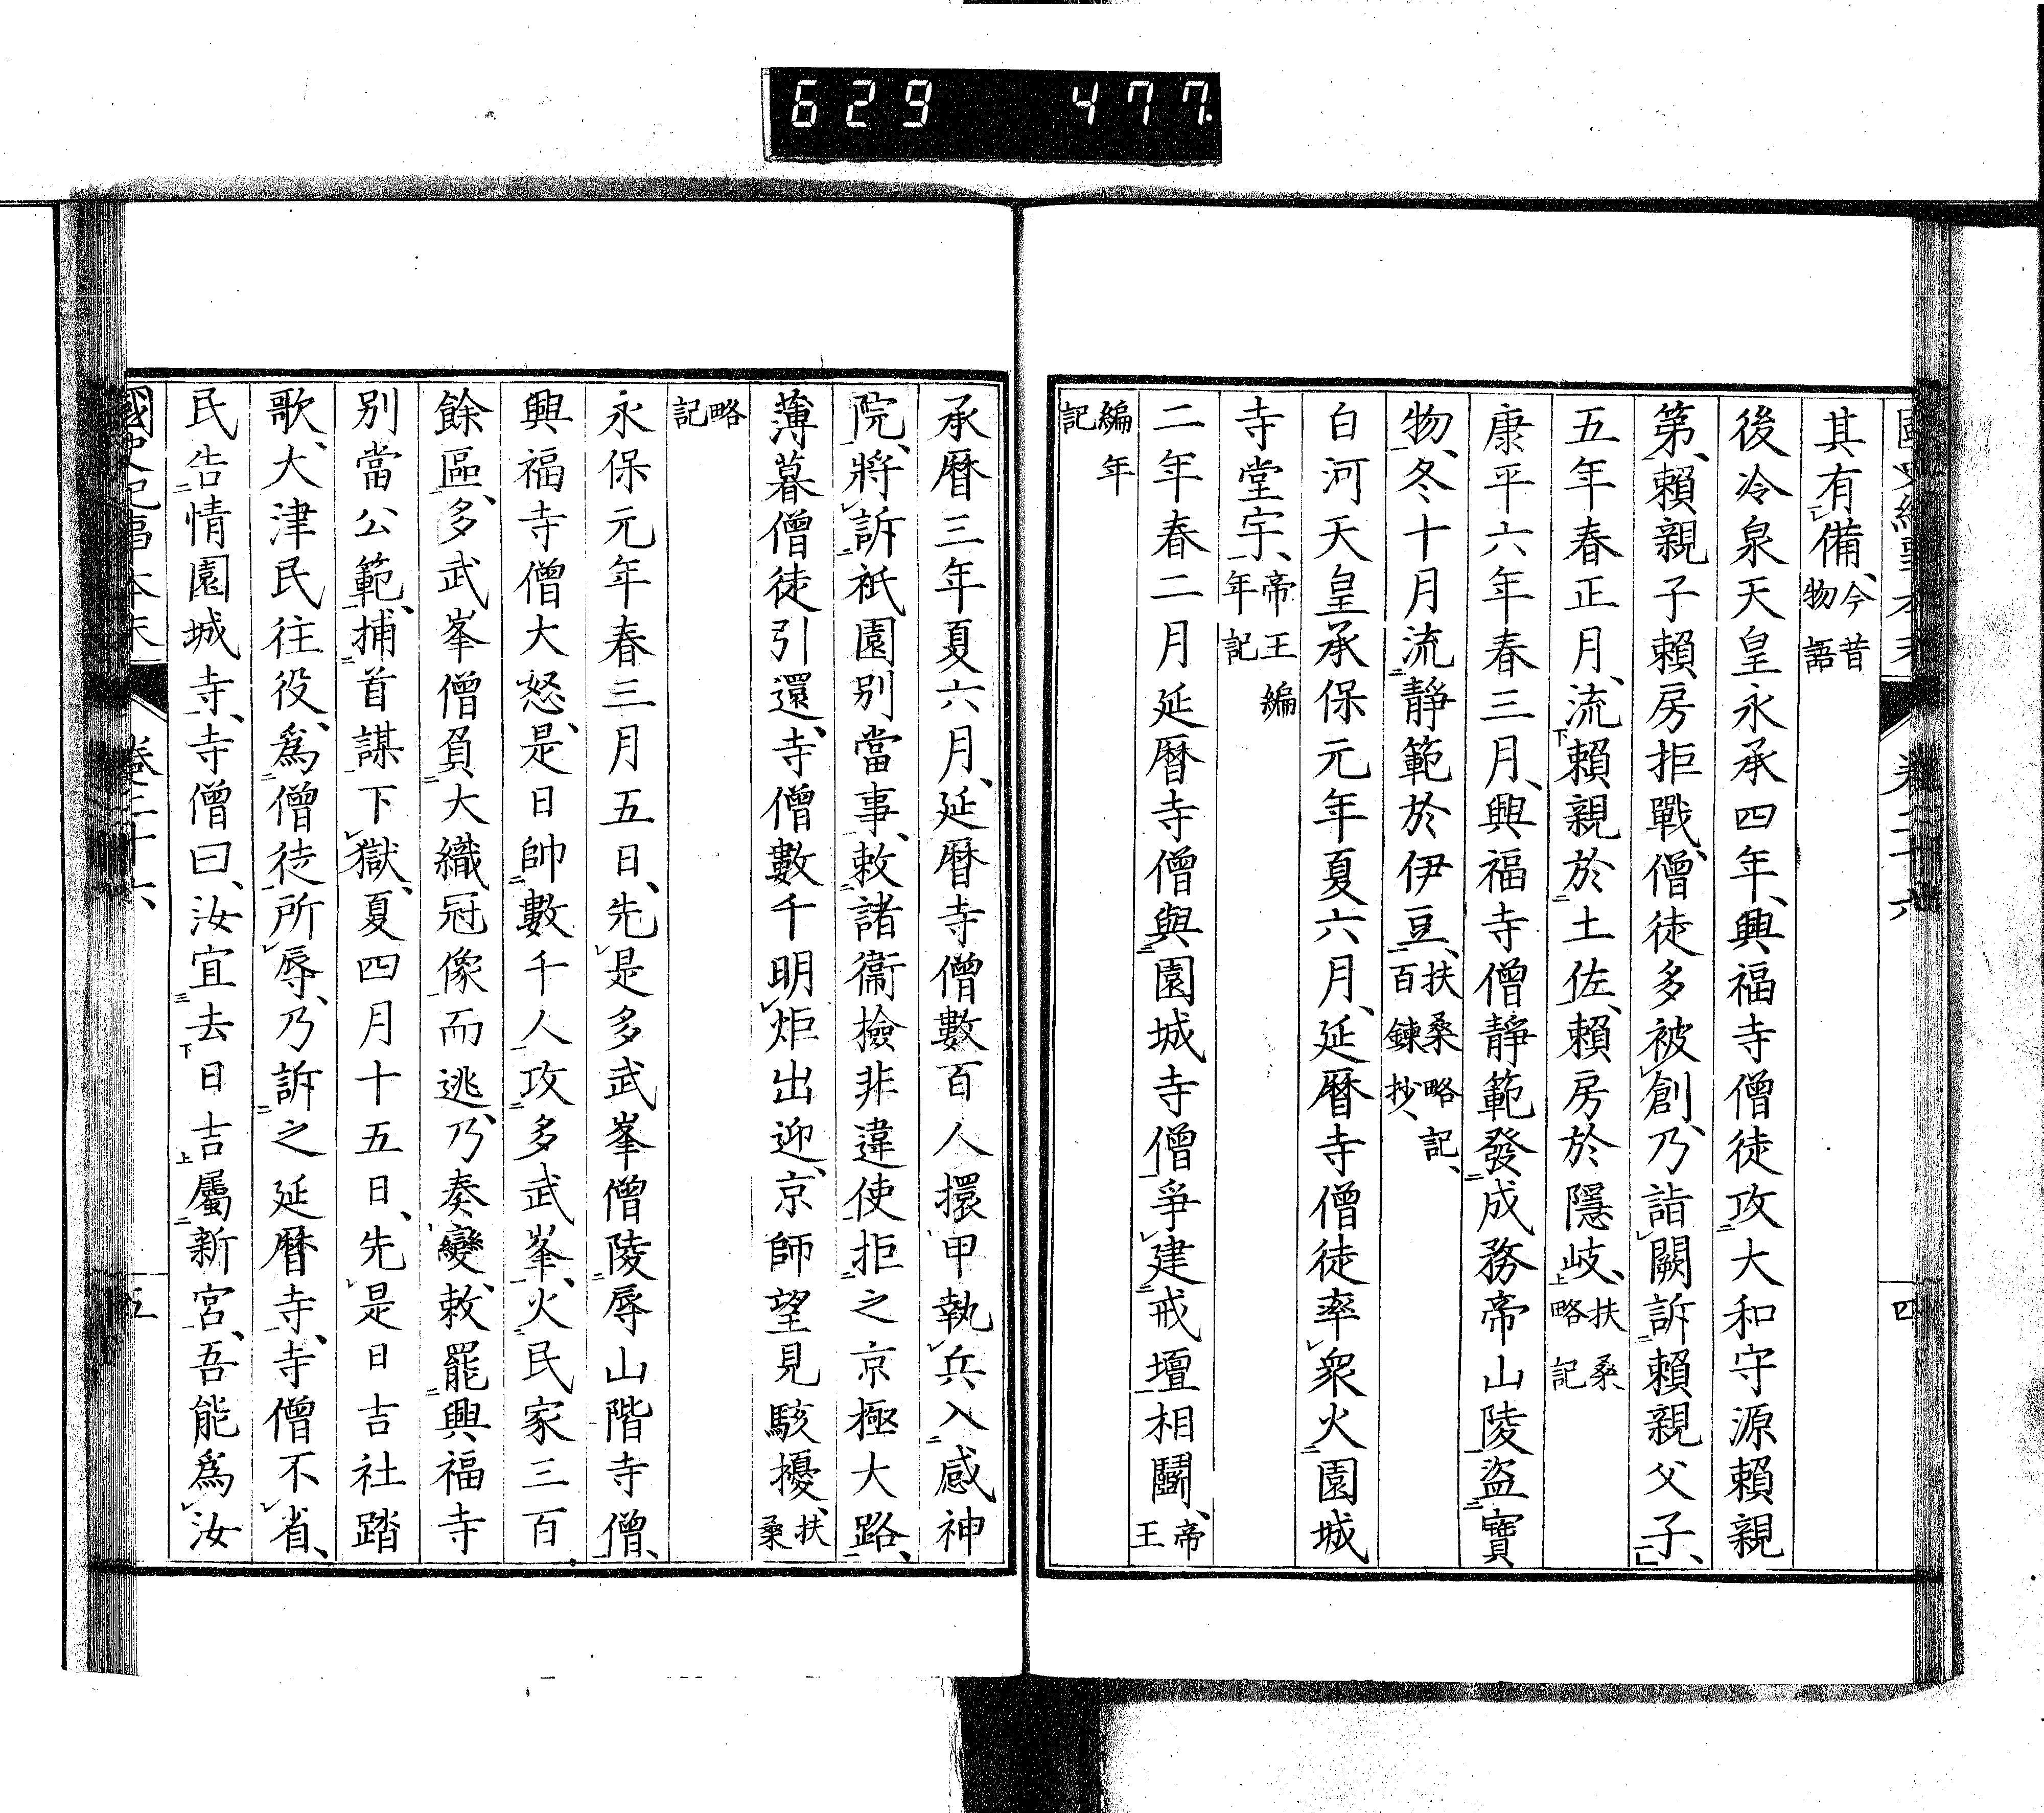 629 477.
其有備、今昔物語
後冷泉天皇永承四年、興福寺僧徒攻大和守源賴親
第、賴親子賴房拒戰、僧徒多被創、乃詣闕訴賴親父子、
五年春正月、流賴親於土佐、賴房於隱岐、扶桑略記
康平六年春三月、興福寺僧靜範發成務帝山陵盜寶
物、冬十月流靜範於伊豆、扶桑略記、百鍊抄、
白河天皇承保元年夏六月、延曆寺僧徒率衆火園城
寺堂宇、帝王編年記
二年春二月延曆寺僧與園城寺僧爭建戒壇相鬭、帝王
編年記
四
承曆三年夏六月、延曆寺僧數百人擐甲執兵入感神
院、將訴祇園別當事、敕諸衞檢非違使拒之京極大路、
薄暮僧徒引還、寺僧數千明炬出迎、京師望見駭擾、扶桑
略記
永保元年春三月五日、先是多武峯僧陵辱山階寺僧、
興福寺僧大怒、是日帥數千人攻多武峯、火民家三百
餘區、多武峯僧負大織冠像而逃、乃奏變、敕罷興福寺
別當公範、捕首謀下獄、夏四月十五日、先是日吉社踏
歌、大津民往役、爲僧徒所辱、乃訴之延曆寺、寺僧不省、
民告情園城寺、寺僧曰、汝宜去日吉屬新宮、吾能爲汝
國史紀事本末 卷二十六 五